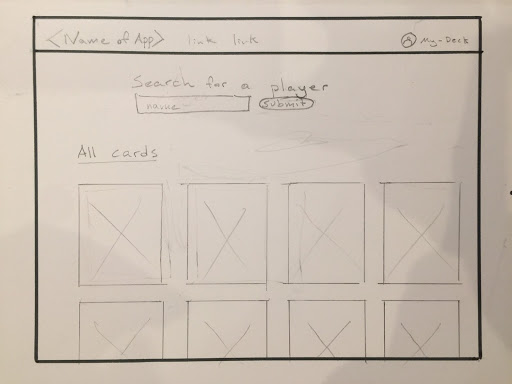 <Name of App> link link My-Deck
Search for a player
name submit
All cards